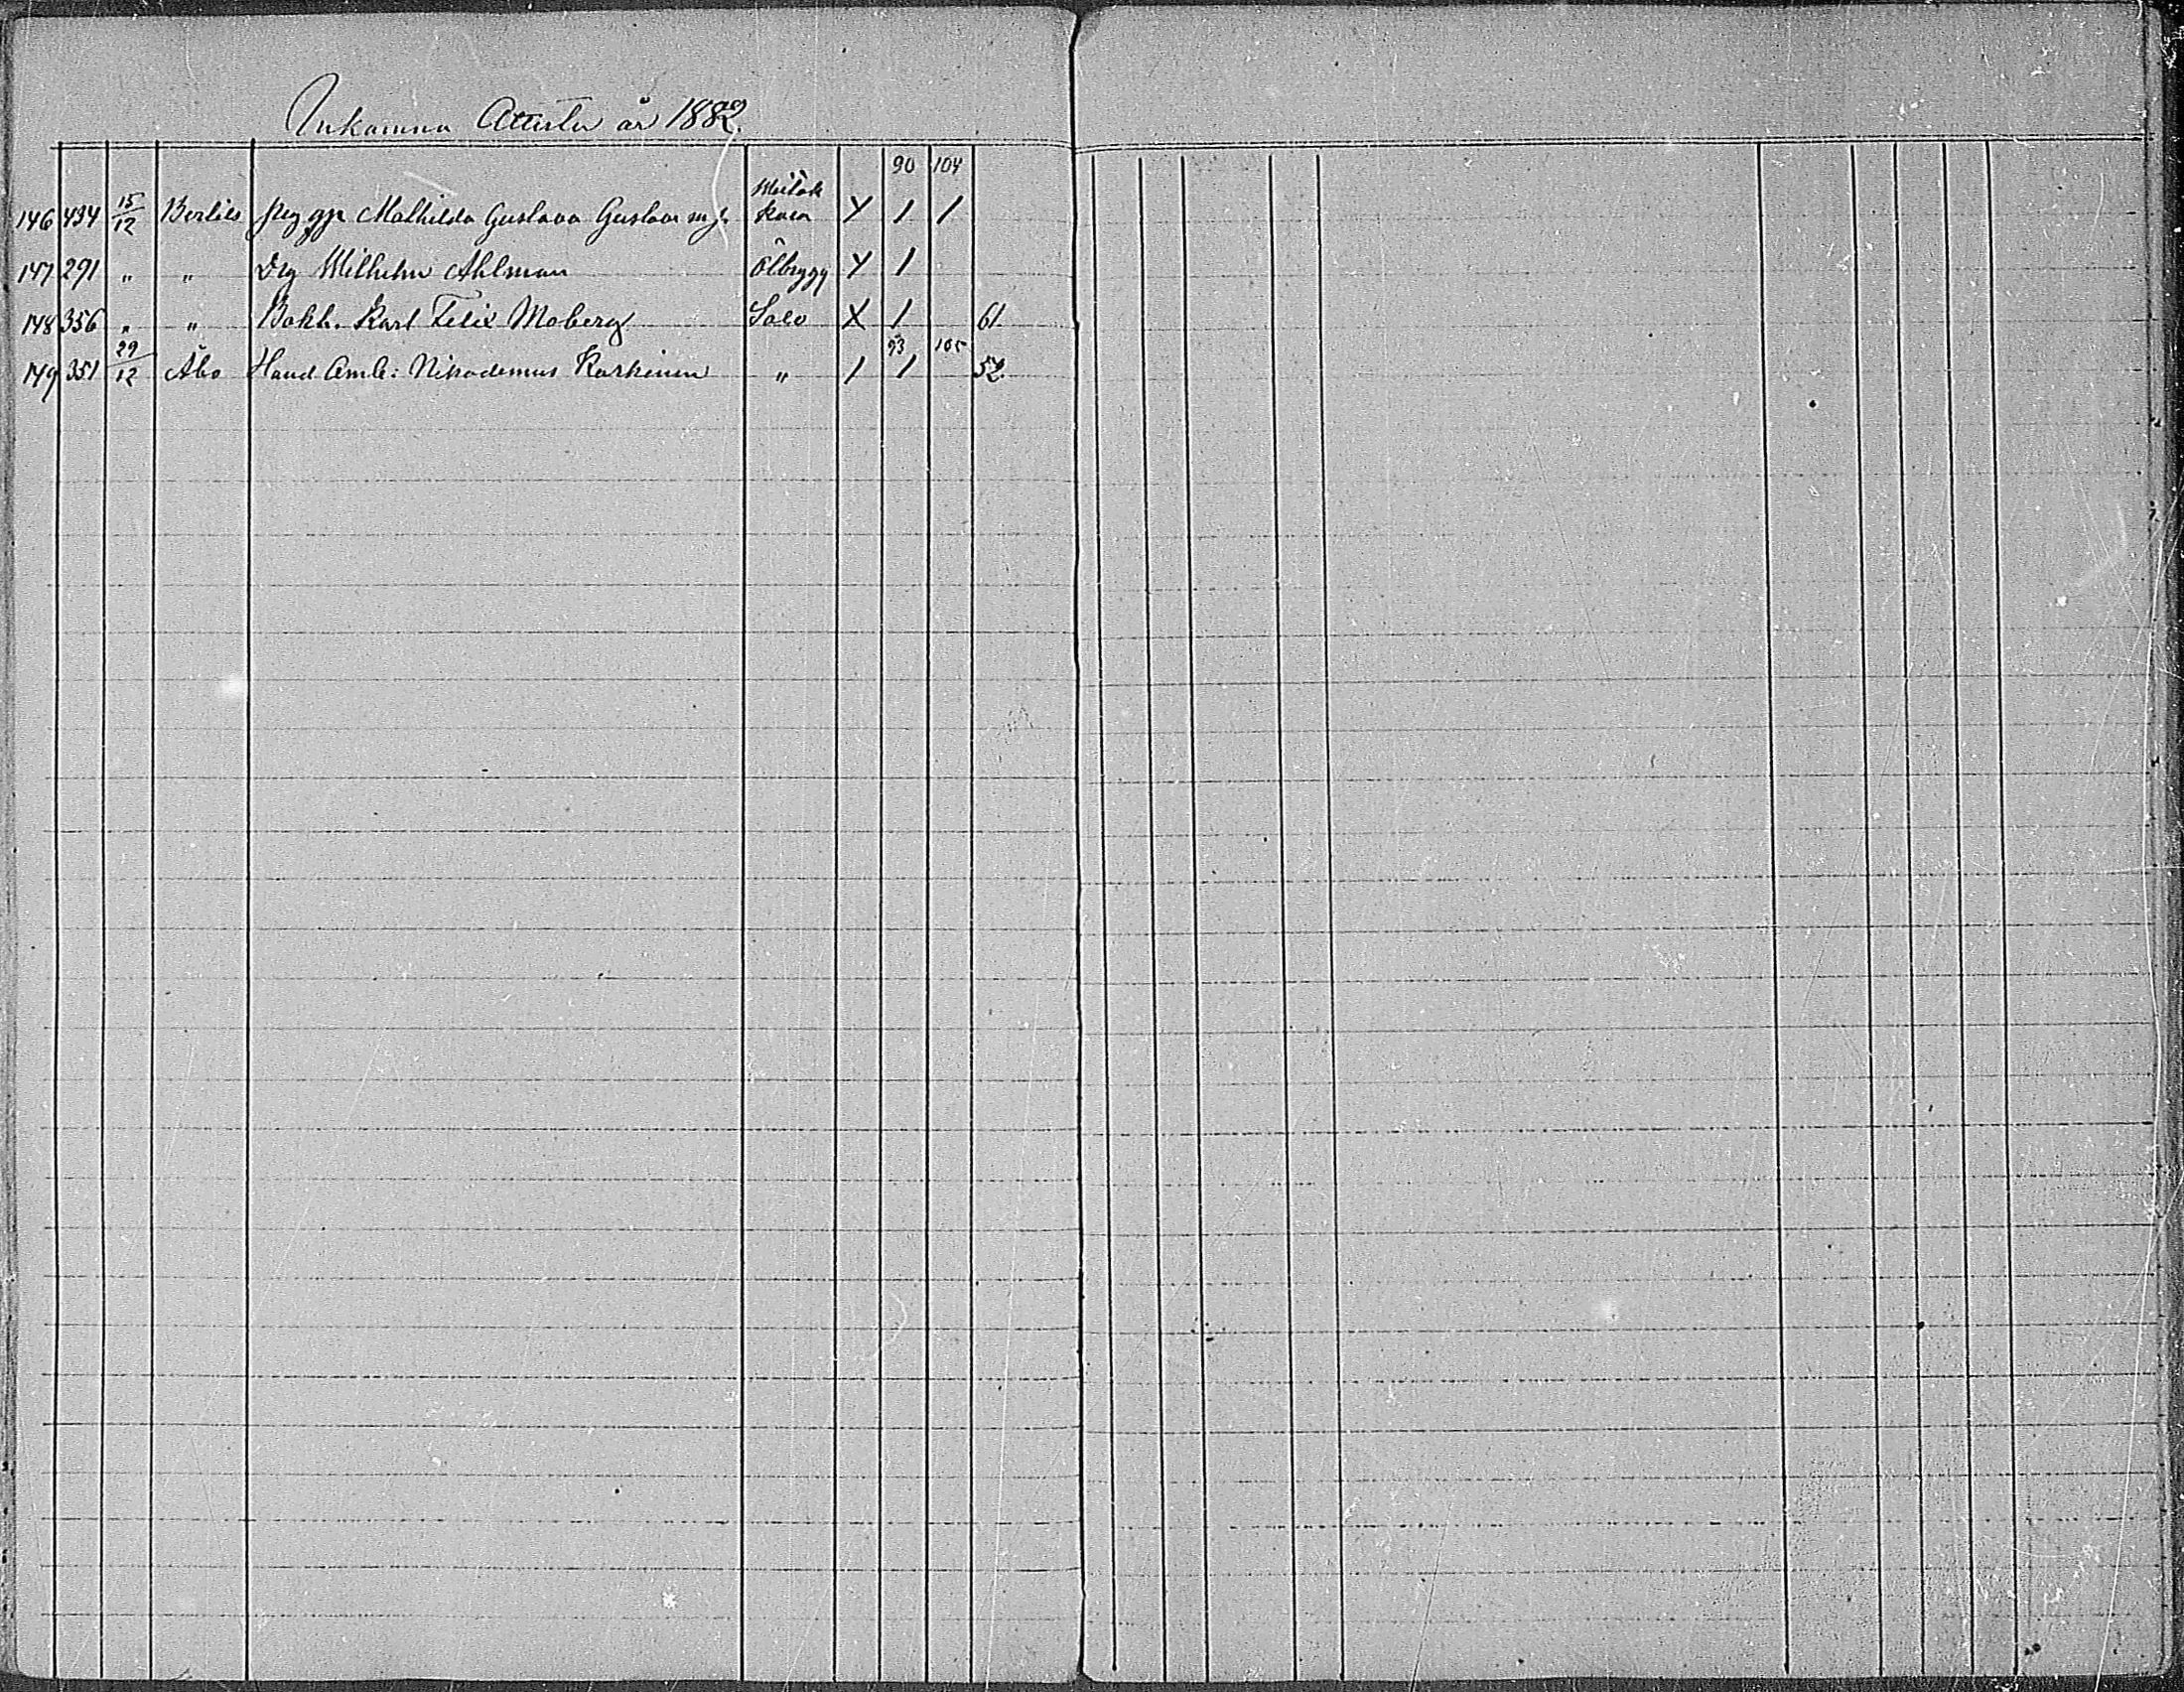 Inkomna Attester år 1882.
90 104
146 434 15/12 Bertils Pig gp Mathilda Gustava Gustavi Y 1 1
147 291 " " Drg Wilhelm Ahlman Ölbrygg Y 1
148 356 " " Bokh. Karl Felix Moberg Salo X 1 61
93 105
149 351 29/12 Åbo Hand Amb: Nikodemus Karkinen " 1 1 52